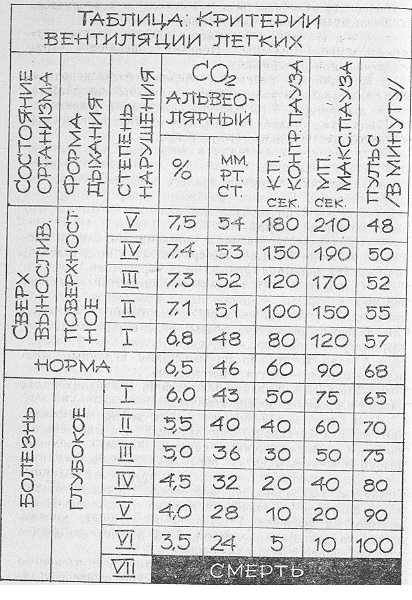 ТАБЛИЦА: КРИТЕРИИ
ВЕНТИЛЯЦИИ ЛЕГКИХ
СОСТОЯНИЕ ОРГАНИЗМА
ФОРМА ДЫХАНИЯ
СТЕПЕНЬ НАРУШЕНИЯ
CO2 АЛЬВЕО-
ЛЯРНЫЙ
%
ММ. РТ. СТ.
КП. КОНТР. ПАУЗА СЕК.
МП. МАКС. ПАУЗА СЕК.
ПУЛЬС /В МИНУТУ/
СВЕРХ ВЫНОСЛИВ.
ПОВЕРХНОСТ НОЕ
V 7,5 54 180 210 48
IV 7.4 53 150 190 50
III 7.3 52 120 170 52
II 7.1 51 100 150 55
I 6,8 48 80 120 57
НОРМА 6,5 46 60 90 68
БОЛЕЗНЬ
ГЛУБОКОЕ
I 6,0 43 50 75 65
II 5,5 40 40 60 70
III 5,0 36 30 50 75
IV 4,5 32 20 40 80
V 4,0 28 10 20 90
VI 3,5 24 5 10 100
VII СМЕРТЬ